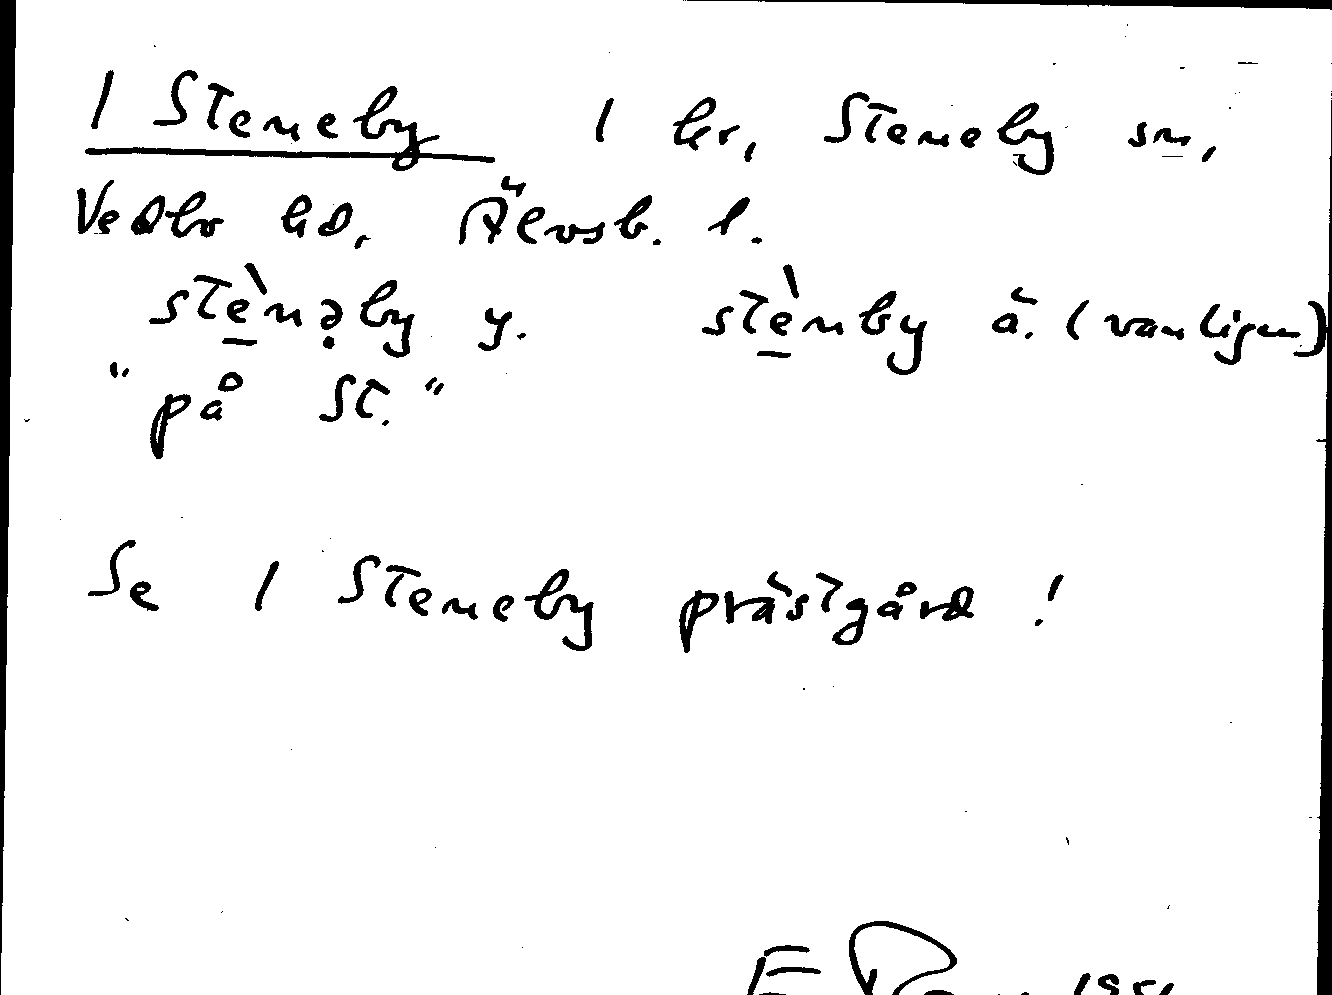 1 Steneby 1 kr, Steneby sn,
Vedbo hd, Älvsb. l.
stèn̲ə̣by y. stèn̲by ä. (vanligen)
"på St."
Se 1 Steneby prästgård !
E